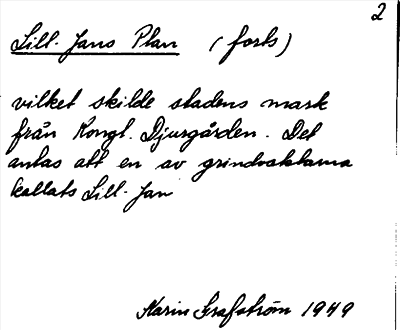 2
Lill-Jans Plan (forts)
vilket skilde stadens mark
från Kongl. Djurgården. Det
antas att en av grindvaktarna
kallats Lill-Jan
Karin Grafström 1949